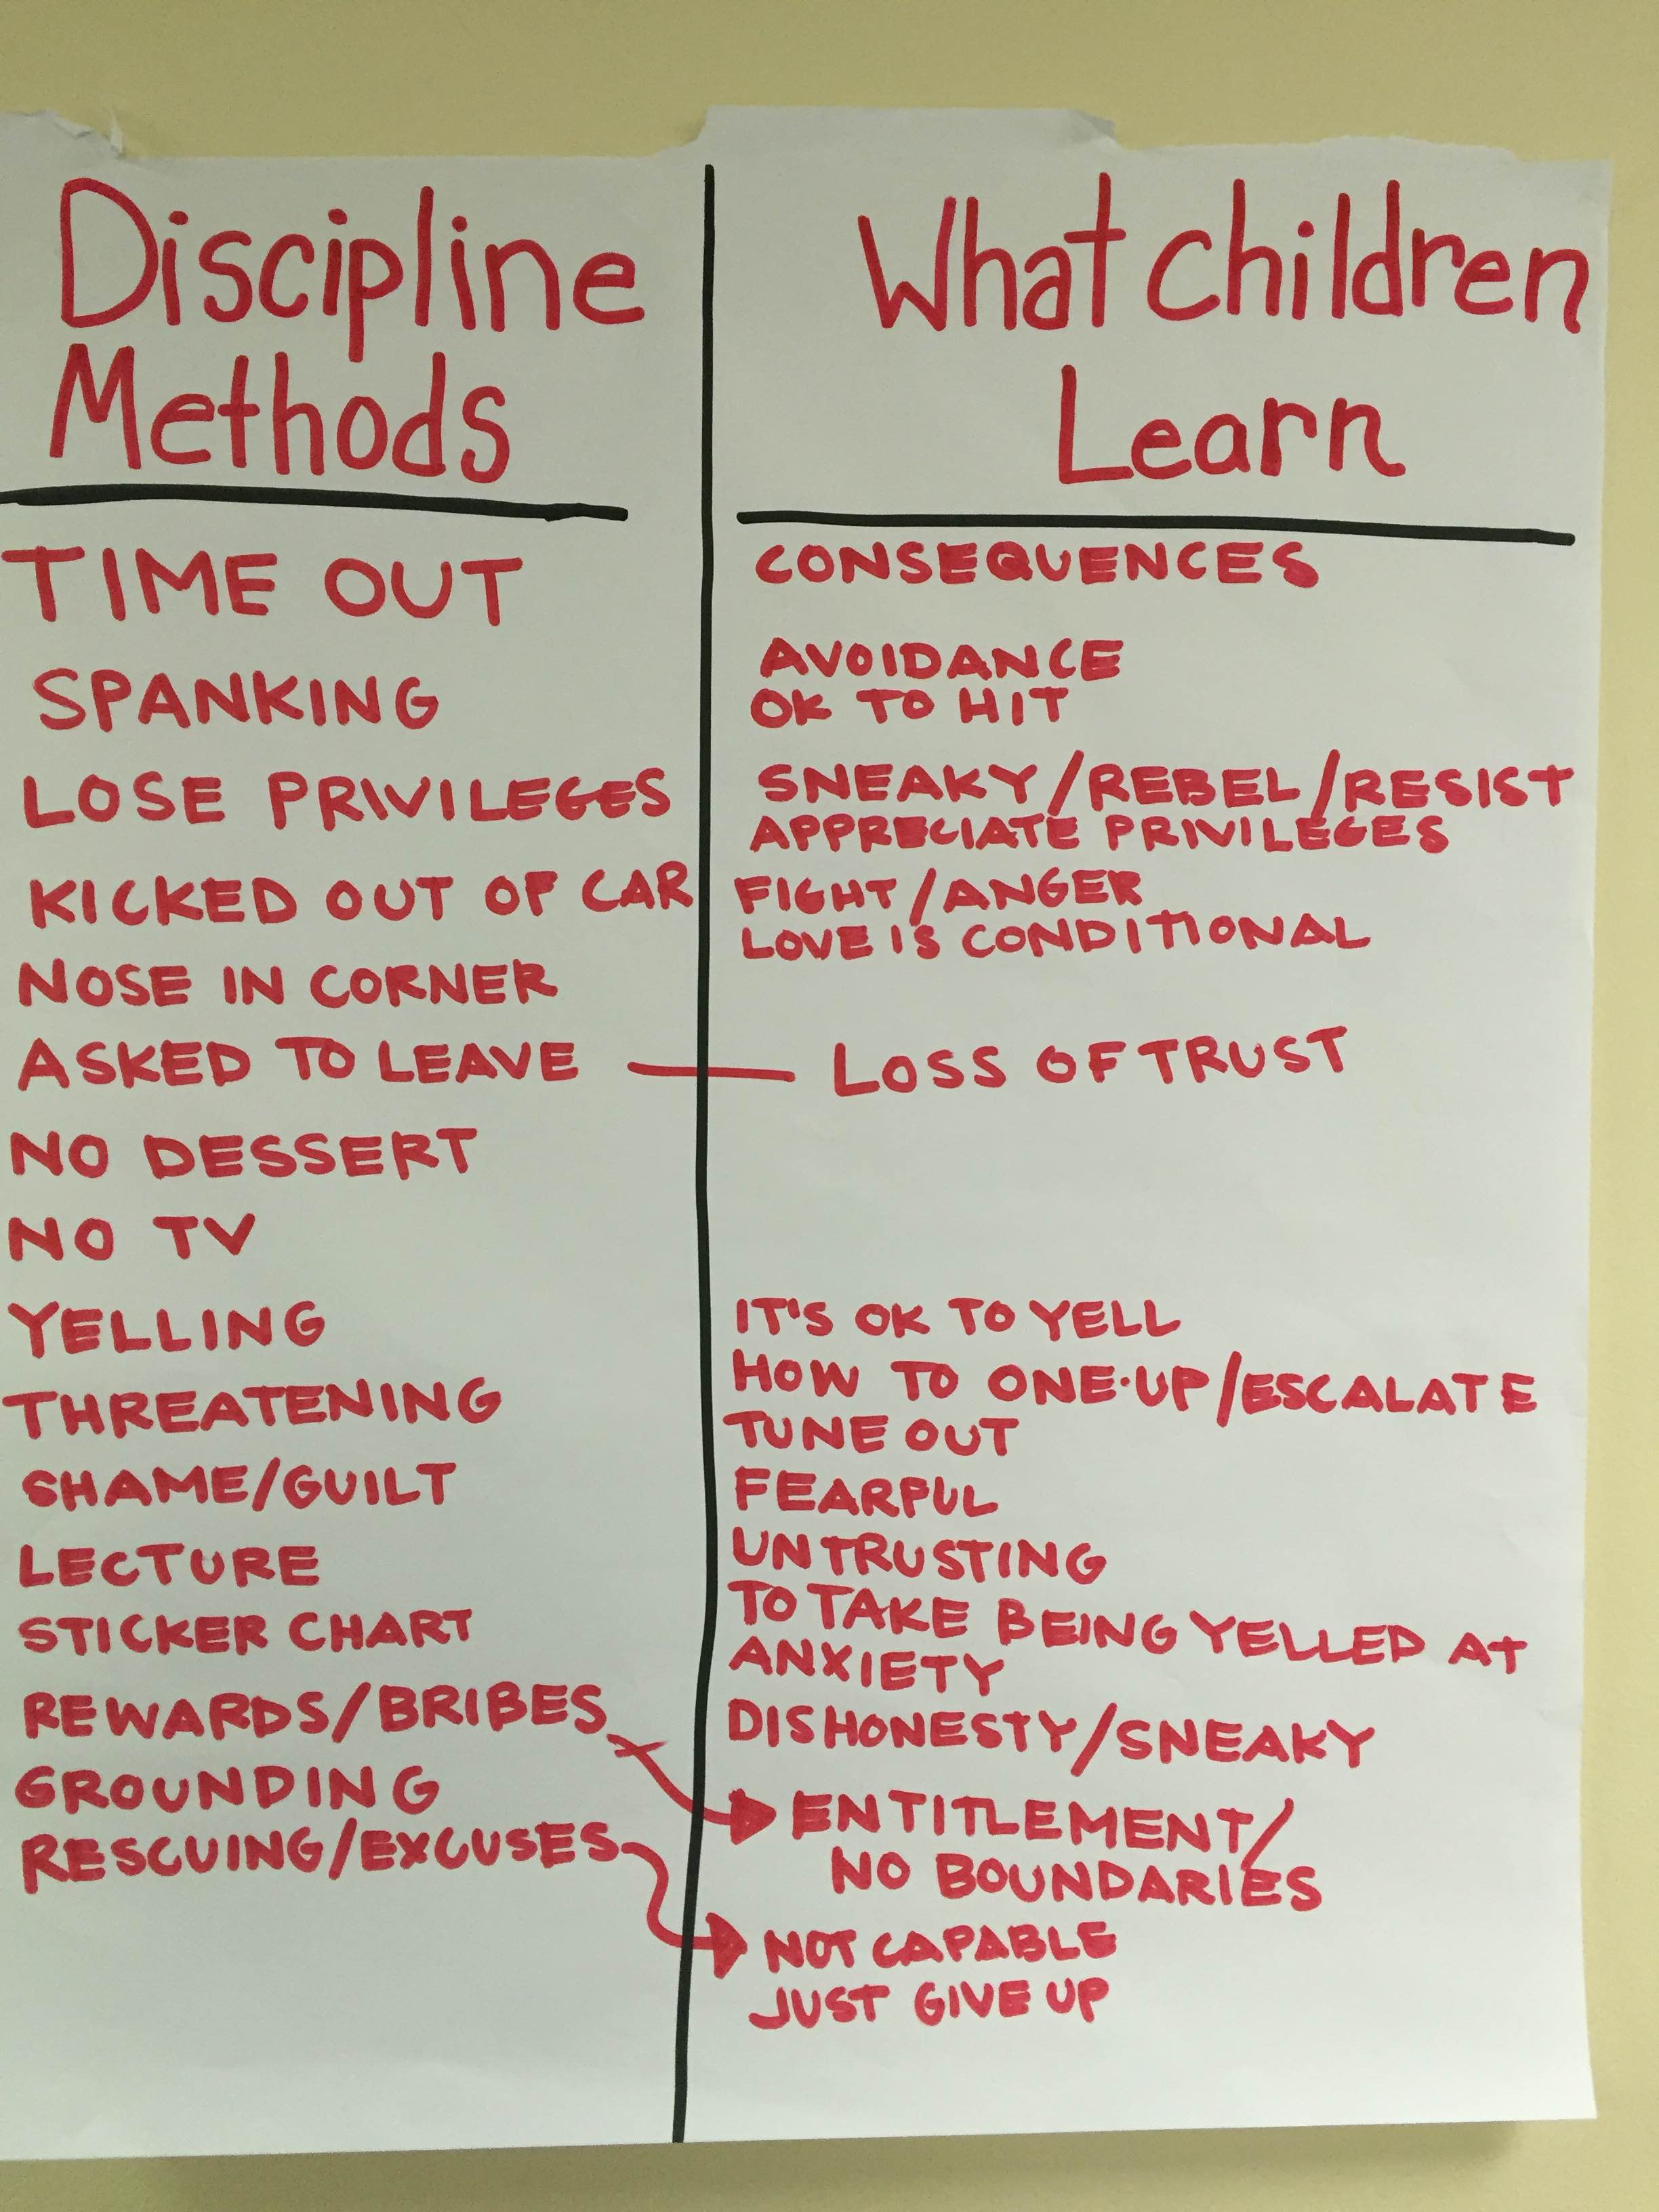 Discipline
Methods
TIME OUT
SPANKING
LOSE PRIVILEGES
KICKED OUT OF CAR
NOSE IN CORNER
ASKED TO LEAVE
NO DESSERT
NO TV
YELLING
THREATENING
SHAME/GUILT
LECTURE
STICKER CHART
REWARDS/BRIBES
GROUNDING
RESCUING/EXCUSES
What Children
Learn
CONSEQUENCES
AVOIDANCE
OK TO HIT
SNEAKY/REBEL/RESIST
APPRECIATE PRIVILEGES
FIGHT/ANGER
LOVE IS CONDITIONAL
LOSS OF TRUST
IT'S OK TO YELL
HOW TO ONE-UP/ESCALATE
TUNE OUT
FEARFUL
UNTRUSTING
TO TAKE BEING YELLED AT
ANXIETY
DISHONESTY/SNEAKY
ENTITLEMENT/
NO BOUNDARIES
NOT CAPABLE
JUST GIVE UP